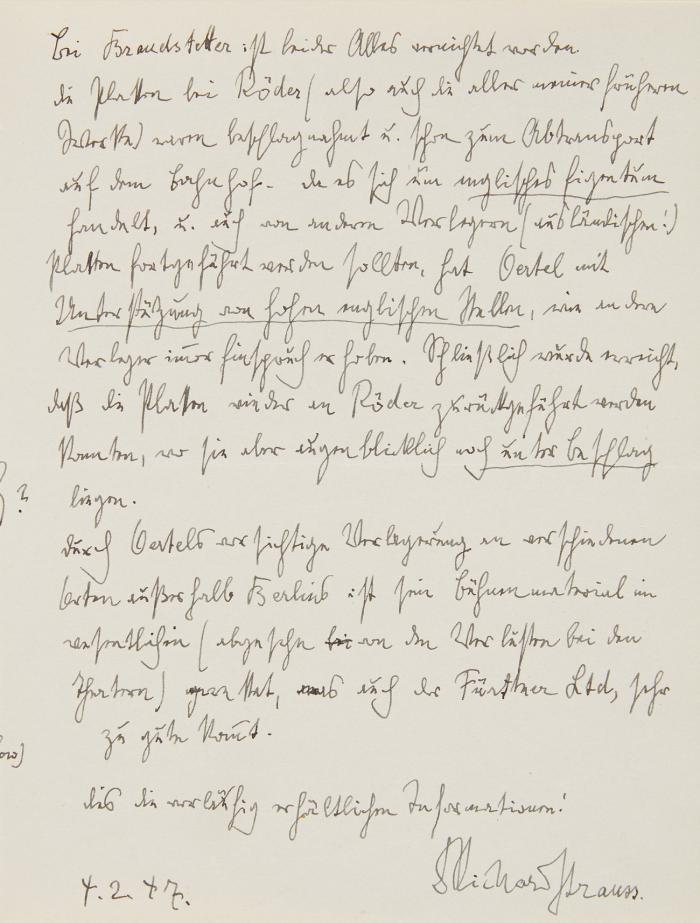 Bei Brandstetter ist leider Alles vernichtet worden.
die Platten bei Röder (also auch die aller meiner früheren
Werke) waren beschlagnahmt u. schon zum Abtransport
auf dem Bahnhof. da es sich um englisches Eigentum
handelt, u. auch von anderen Verlegern (ausländischen!)
Platten fortgeführt werden sollten, hat Oertel mit
Unterstützung von hohen englischen Stellen, wie andere
Verleger immer Einspruch erhoben. Schließlich wurde erreicht,
daß die Platten wieder an Röder zurückgeführt werden
konnten, wo sie aber augenblicklich noch unter beschlag
? liegen.
durch Oertels vorsichtige Verlagerung an verschiedenen
Orten außerhalb Berlins ist sein Bühnenmaterial im
wesentlichen (abgesehn von den Verlusten bei den
Theatern) gerettet, was auch der Fürstner Ltd, sehr
zu gute kommt.
dies die vorläufig erhältlichen Informationen!
4. 2. 47. Richard Strauss.